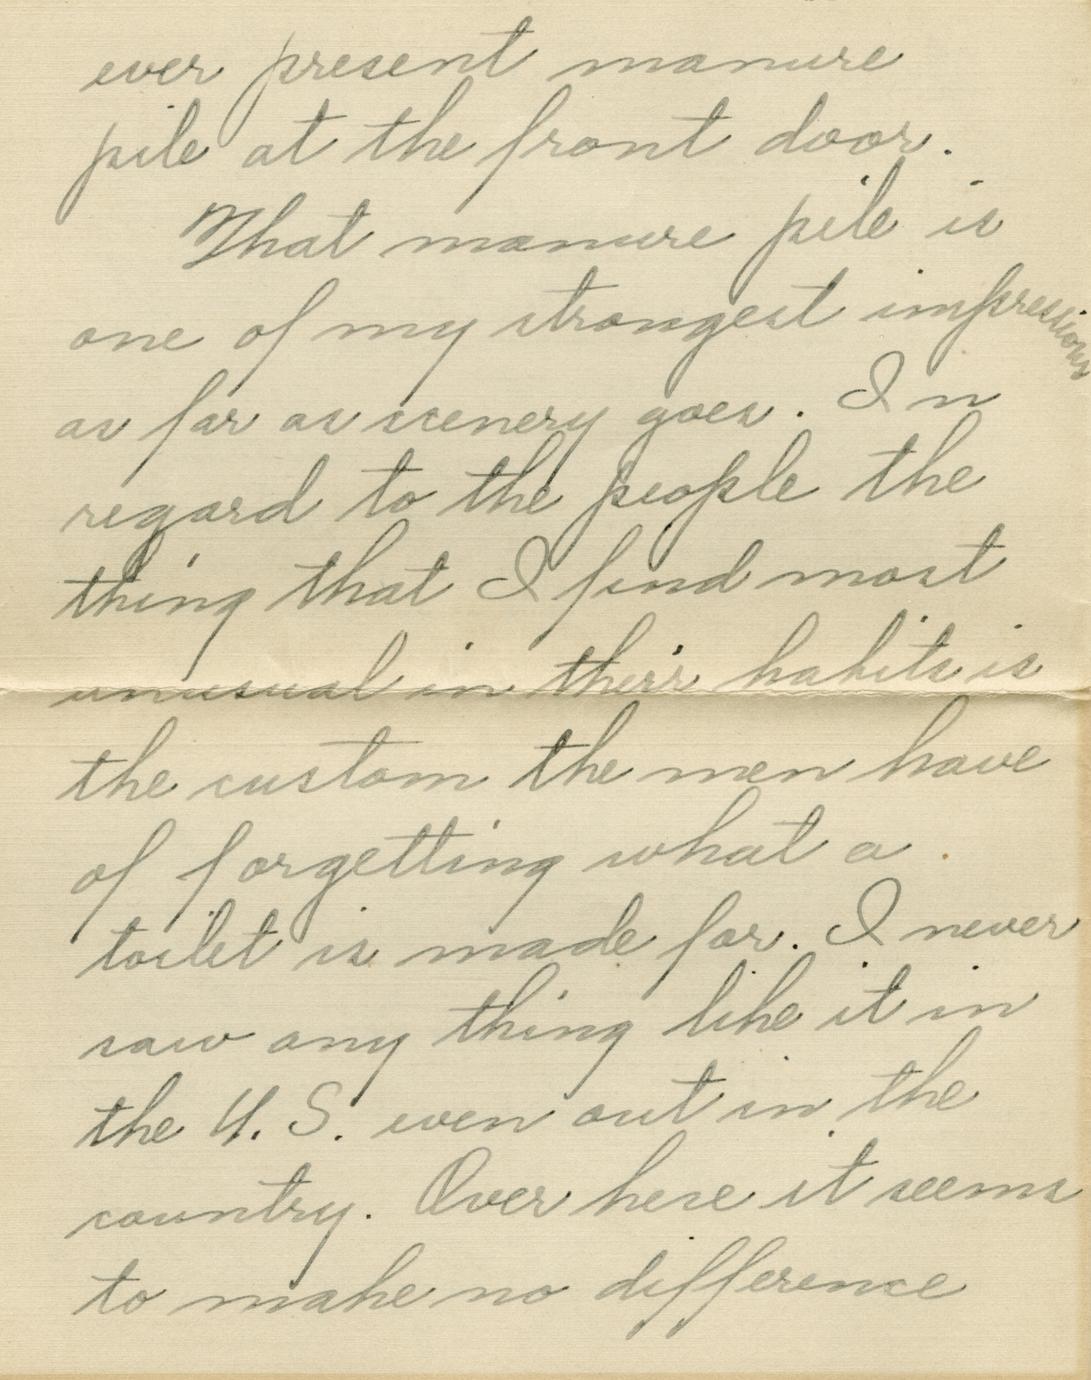 ever present manure
pile at the front door.
That manure pile is
one of my strongest impressions
as far as scenery goes. In
regard to the people the
thing that I find most
unusual in their habits is
the custom the men have
of forgetting what a
toilet is made for. I never
saw any thing like it in
the U. S. even out in the
country. Over here it seems
to make no difference